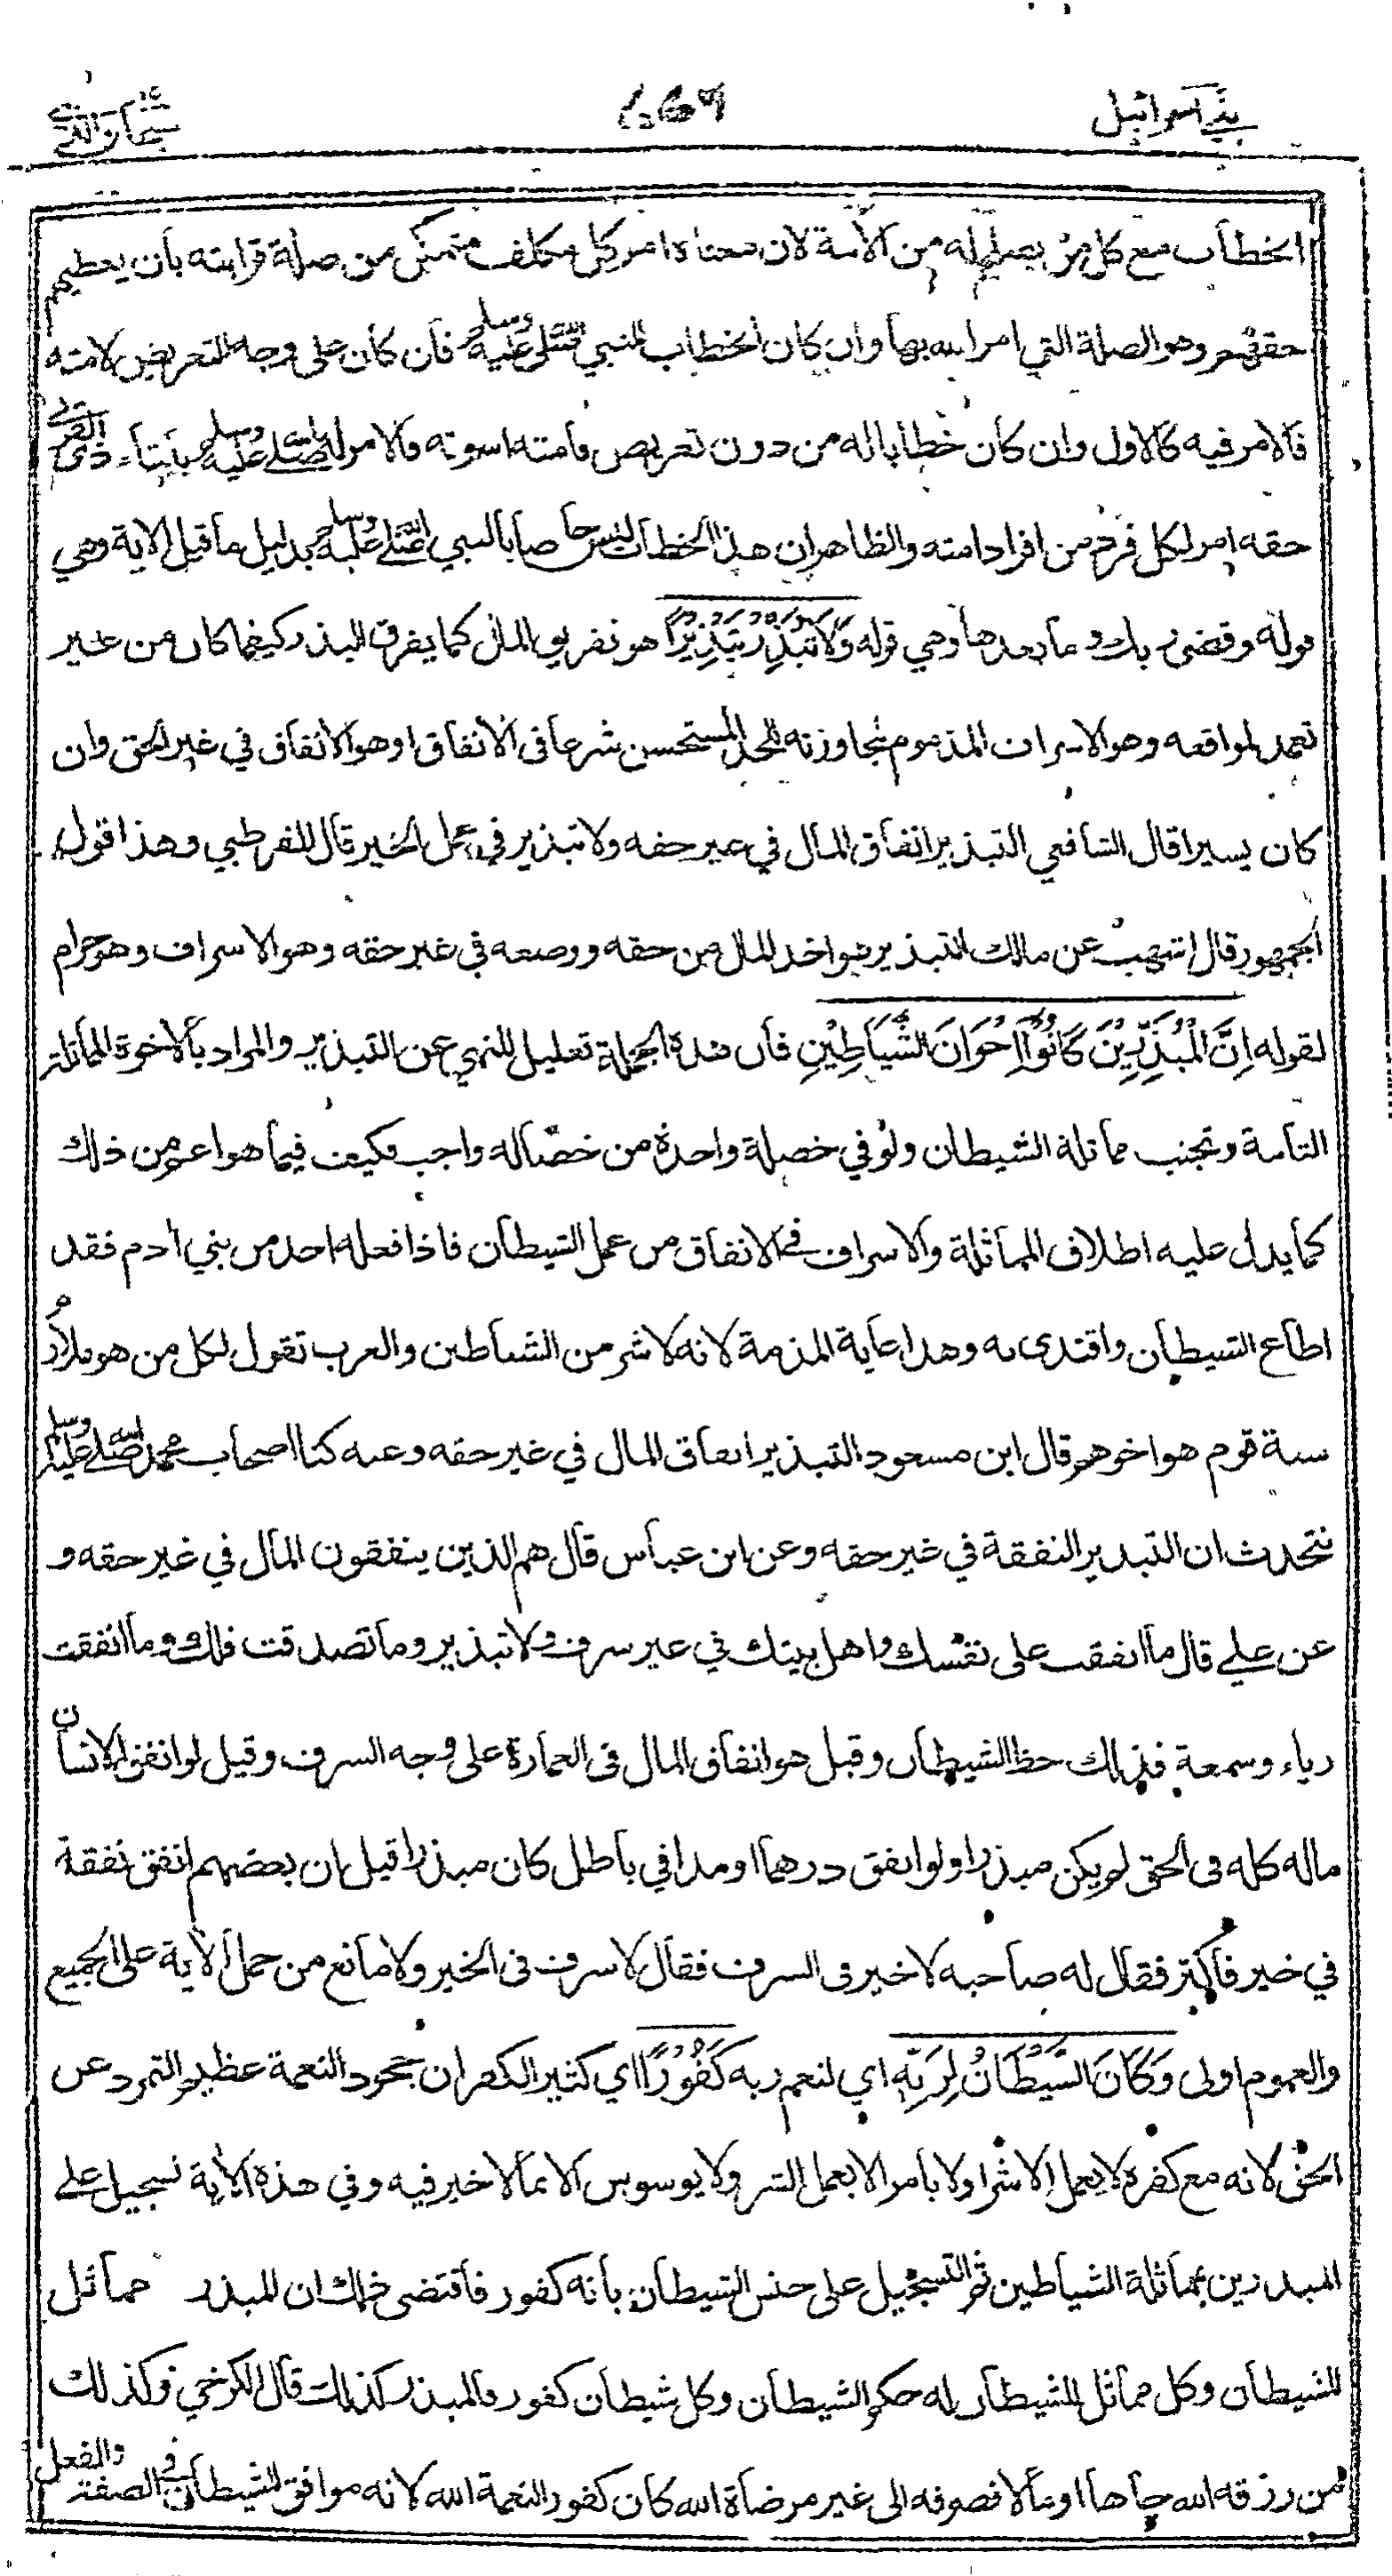 بني اسرائيل
سبحان الذي ١٥
الخطاب مع كل من يصلح له من الامة لان معناه امر كل مكلف متمكن من صلة قرابته بان يعطيهم
حقهم وهو الصلة التي امر الله بها وان كان الخطاب للنبي صلى الله عليه وسلم فان كان على وجه التعريض لامته
فالامر فيه كالاول وان كان خطابا له من دون تعريض فامته اسوته فالامر له صلى الله عليه وسلم بايتاء ذى القربى
حقه امر لكل فرد من افراد امته والظاهر ان هذا الخطاب ليس خاصا بالنبي صلى الله عليه وسلم بدليل ما قبل الاية وهي
قوله وقضى ربك وما بعدها وهي قوله وَلَا تُبَذِّرْ تَبْذِيْرًا هو تفريق المال كما يفرق البذر كيفما كان من غير
تعمد لمواقعه وهو الاسراف المذموم لمجاوزته للحد المستحسن شرعا فى الانفاق او هو الانفاق في غير الحق وان
كان يسيرا قال الشافعي التبذير انفاق المال في غير حقه ولا تبذير في عمل الخير قال القرطبي وهذا قول
الجمهور قال اشهب عن مالك التبذير هو اخذ المال من حقه ووضعه في غير حقه وهو الاسراف وهو حرام
لقوله اِنَّ الْمُبَذِّرِيْنَ كَانُوْا اِخْوَانَ الشَّيَاطِيْنِ فان هذه الجملة تعليل للنهي عن التبذير والمراد بالاخوة المماثلة
التامة وتجنب مماثلة الشيطان ولو في خصلة واحدة من خصاله واجب فكيف فيما هو اعم من ذلك
كما يدل عليه اطلاق المماثلة والاسراف فى الانفاق من عمل الشيطان فاذا فعله احد من بني أدم فقد
اطاع الشيطان واقتدى به وهذا غاية المذمة لانه لا شر من الشياطين والعرب تقول لكل من هو ملازم
سنة قوم هو اخوهم قال ابن مسعود التبذير انفاق المال في غير حقه وعنه كنا اصحاب محمد صلى الله عليه وسلم
نتحدث ان التبذير النفقة في غير حقه وعن ابن عباس قال هم الذين ينفقون المال في غير حقه و
عن علي قال ما انفقت على نفسك واهل بيتك في غير سرف ولا تبذير وما تصدقت فلك وما انفقت
رياء وسمعة فذلك حظ الشيطان وقيل هو انفاق المال فى العمارة على وجه السرف وقيل لو انفق الانسان
ماله كله فى الحق لم يكن مبذرا ولو انفق درهما او مدا في باطل كان مبذرا قيل ان بعضهم انفق نفقة
في خير فاكثر فقال له صاحبه لا خير فى السرف فقال لا سرف فى الخير ولا مانع من حمل الأية على الجميع
والعموم اولى وَكَانَ الشَّيْطَانُ لِرَبِّهِ اي لنعم ربه كَفُوْرًا اي كثير الكفران جحود النعمة عظيم التمرد عن
الحق لانه مع كفره لا يعمل الا شرا ولا يأمر الا بعمل الشر ولا يوسوس الا بما لا خير فيه وفي هذه الأية تسجيل على
المبذرين بمماثلة الشياطين ثم التسجيل على جنس الشيطان بانه كفور فاقتضى ذلك ان المبذر مماثل
للشيطان وكل مماثل للشيطان له حكم الشيطان وكل شيطان كفور فالمبذر كذلك قال الكرخي وكذلك
من رزقه الله جاها او مالا فصرفه الى غير مرضاة الله كان كفورا لنعمة الله لانه موافق للشيطان فى الصفة والفعل